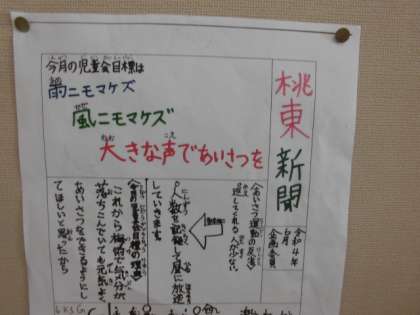 桃東新聞
令和4年
6月
企画委員
今月の児童会目標は
雨ニモマケズ
風ニモマケズ
大きな声であいさつを
〈あいさつ運動の反省〉
返してくれる人が少ない
人数を記録して昼に放送
していきます。
〈今月の児童会目標の理由〉
これから梅雨で気分が
落ちこんでいても元気よく
あいさつをできるようにし
てほしいと思ったから